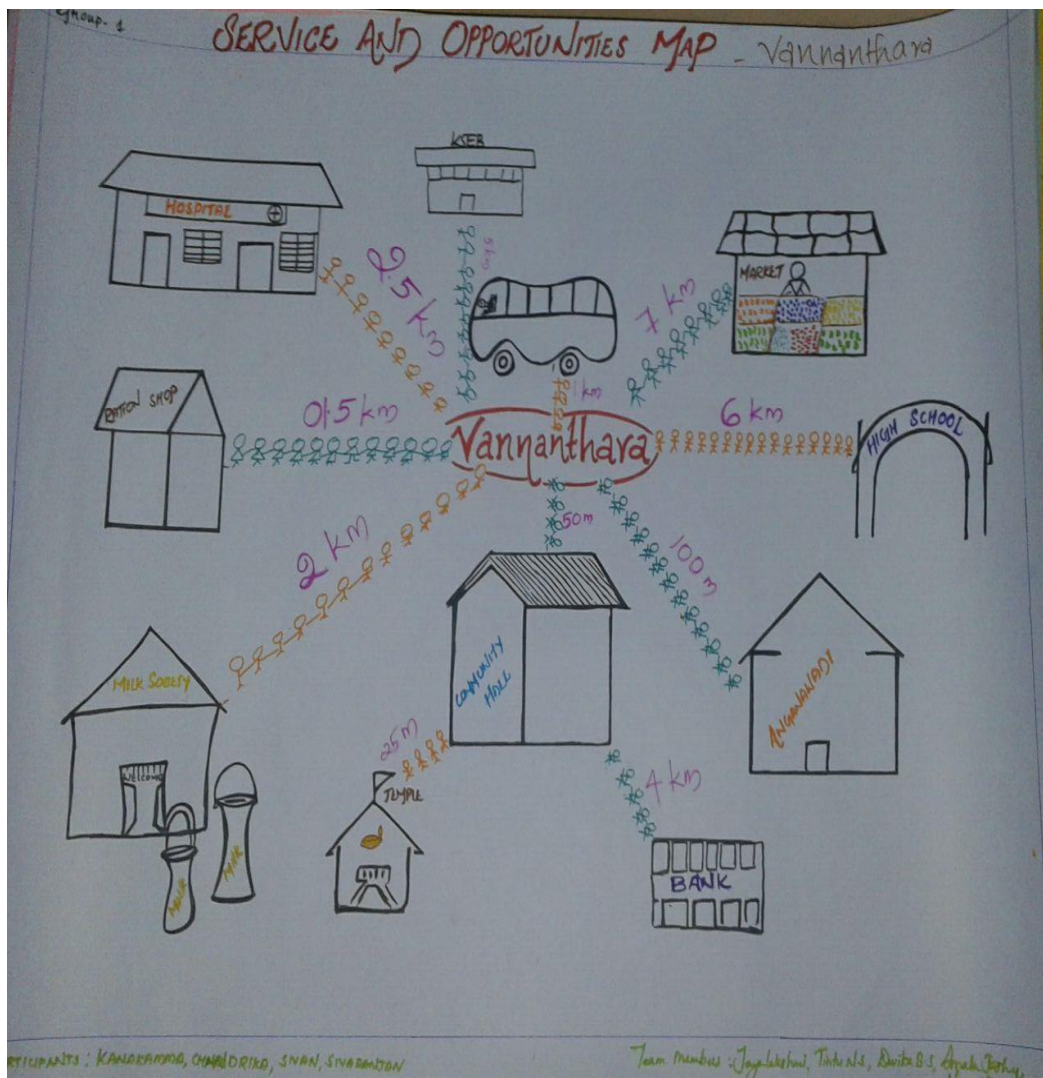 Group-1
SERVICE AND OPPORTUNITIES MAP - Vannanthara
KSEB
HOSPITAL
2.5 km
5 km
MARKET
7 km
RATION SHOP
0.5 km
1 km
Vannanthara
6 km
HIGH SCHOOL
50m
100 m
2 km
MILK SOCIETY
WELCOME
MILK
MILK
COMMUNITY
HALL
ANGANAWADY
25 m
TEMPLE
4 km
BANK
RTICIPANTS : KANAKAMMA, CHANDRIKA, SIVAN, SIVARANJAN
Team Members : Jayalekshmi, Tintu N.S,